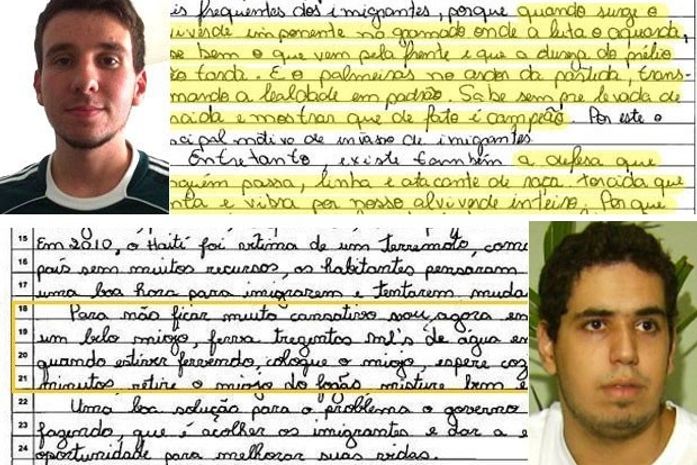 is frequentes dos imigrantes, porque quando surge o
viverde imponente no gramado onde a luta o aguarda,
be bem o que vem pela frente e que a dureza do prélio
ão tarda. E o palmeiras no ardor da partida, trans-
mando a lealdade em padrão. Sabe sempre levada de
ncida e mostrar que de fato é campeão. Por este o
cipal motivo de invasão de imigrantes
Entretanto, existe também a defesa que
nguém passa, linha e atacante de raça. torcida que
nta e vibra por nosso alviverde inteiro. Por que
15 Em 2010, o Haiti foi vítima de um terremoto, como
16 país sem muitos recursos, os habitantes pensaram
17 uma boa hora para imigrarem e tentarem muda
18 Para não ficar muito cansativo vou agora en
19 um belo miojo, ferva trezentos ml's de água em
20 quando estiver fervendo, coloque o miojo, espere coz
21 minutos retire o miojo do fogão misture bem e
22 Uma boa solução para o problema o governo
23 fazendo, que é acolher os imigrantes e dar a e
24 oportunidade para melhorar suas vidas.